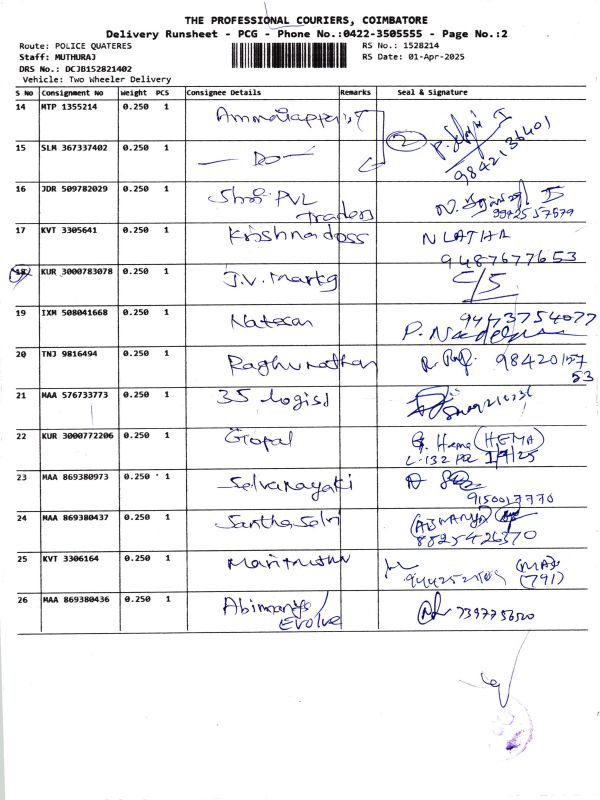 THE PROFESSIONAL COURIERS, COIMBATORE
Delivery Runsheet - PCG - Phone No.:0422-3505555 - Page No.:2
Route: POLICE QUATERES RS No.: 1528214
Staff: MUTHURAJ RS Date: 01-Apr-2025
DRS No.: DCJB152821402
Vehicle: Two Wheeler Delivery
S No Consignment No Weight PCS Consignee Details Remarks Seal & Signature
14 MTP 1355214 0.250 1 2
9842136401
15 SLM 367337402 0.250 1 Do
16 JDR 509782029 0.250 1 Shri PVL
Traders
17 KVT 3305641 0.250 1 Krishnadoss N LATHA
9487677653
18 KUR 3000783078 0.250 1 C/S
19 IXM 508041668 0.250 1 Natesan 9443754077
20 TNJ 9816494 0.250 1 Raghunathan 98420157
53
21 MAA 576733773 0.250 1
22 KUR 3000772206 0.250 1 Gopal G. Hema (HEMA)
1/4/25
23 MAA 869380973 0.250 1 Selvanayaki
9150017770
24 MAA 869380437 0.250 1 Santhaselvi
8825426370
25 KVT 3306164 0.250 1
(791)
26 MAA 869380436 0.250 1 Abimanyu 7397756520
Evolve